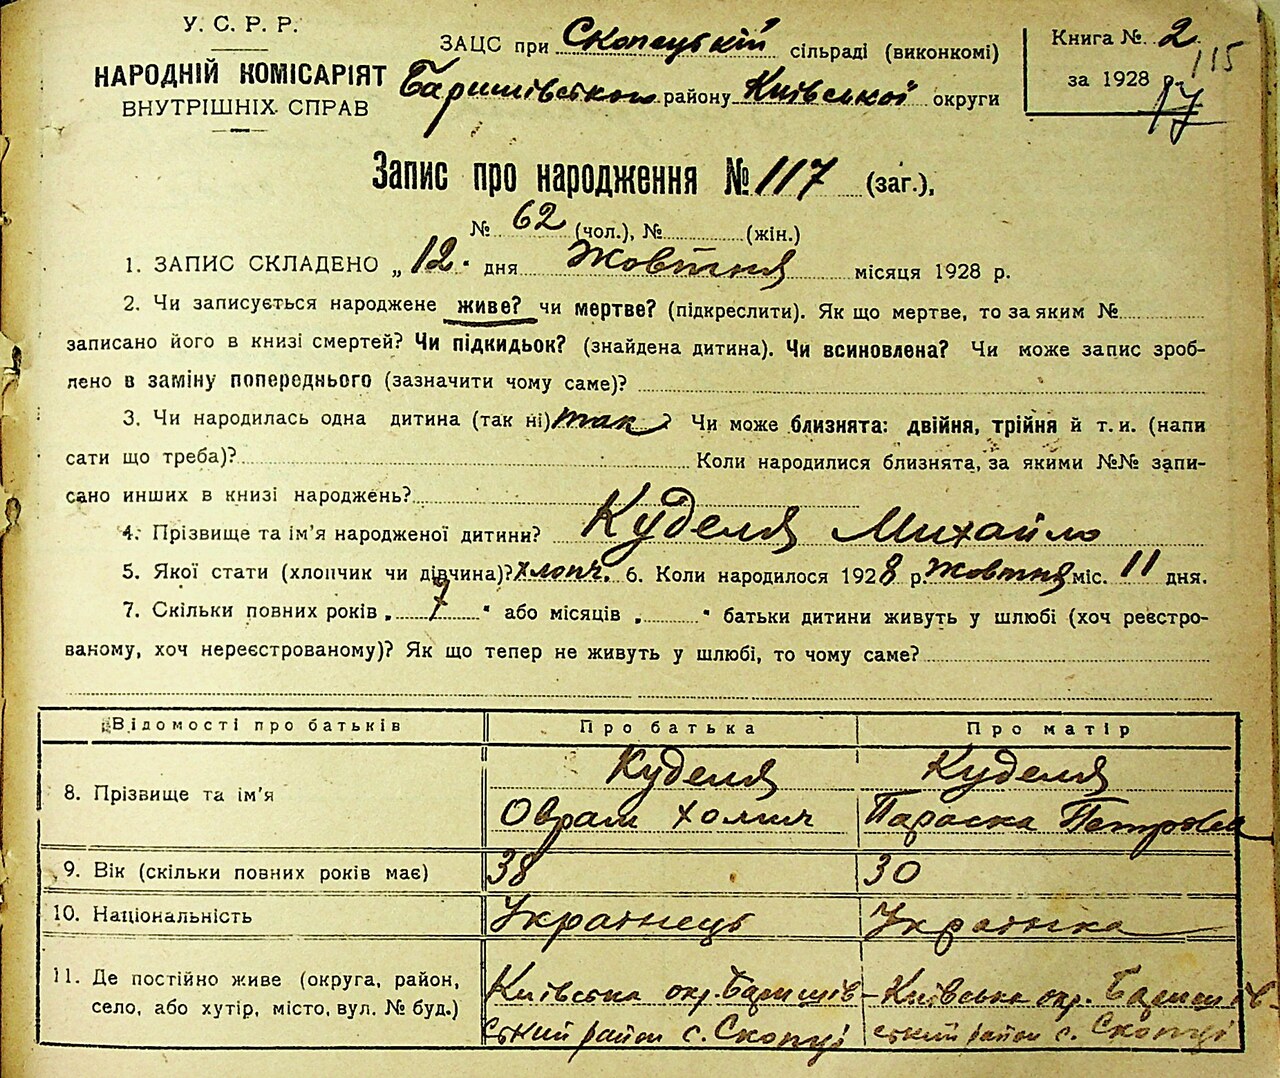 У. С. Р. Р.
НАРОДНІЙ КОМІСАРІЯТ
ВНУТРІШНІХ СПРАВ
ЗАЦС при Скопецькій сільраді (виконкомі)
Баришівського району Київської округи
Книга № 2
за 1928 р.
115
17
Запис про народження № 117 (заг.),
№ 62 (чол.), № (жін.)
1. ЗАПИС СКЛАДЕНО „12" дня Жовтня місяця 1928 р.
2. Чи записується народжене живе? чи мертве? (підкреслити). Як що мертве, то за яким №
записано його в книзі смертей? Чи підкидьок? (знайдена дитина). Чи всиновлена? Чи може запис зроб-
лено в заміну попереднього (зазначити чому саме)?
3. Чи народилась одна дитина (так ні) так ? Чи може близнята: двійня, трійня й т. и. (напи
сати що треба)? Коли народилися близнята, за якими №№ запи-
сано инших в книзі народжень?
4. Прізвище та ім'я народженої дитини? Куделя Михайло
5. Якої стати (хлопчик чи дівчина)? хлопч. 6. Коли народилося 1928 р. Жовтня міс. 11 дня.
7. Скільки повних років „ 7 " або місяців „ " батьки дитини живуть у шлюбі (хоч реєстро-
ваному, хоч нереєстрованому)? Як що тепер не живуть у шлюбі, то чому саме?
Відомості про батьків Про батька Про матір
8. Прізвище та ім'я Куделя Оврам Хомич Куделя Параска Петровна
9. Вік (скільки повних років має) 38 30
10. Національність Українець Українка
11. Де постійно живе (округа, район, Київська окр. Баришів- Київська окр. Баришів-
село, або хутір, місто, вул. № буд.) ський район с. Скопці ський район с. Скопці